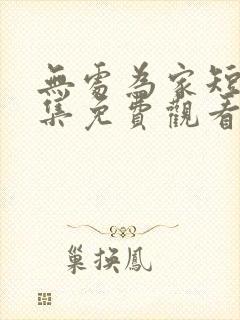 無處為家短
集免費觀看
巢換鳳